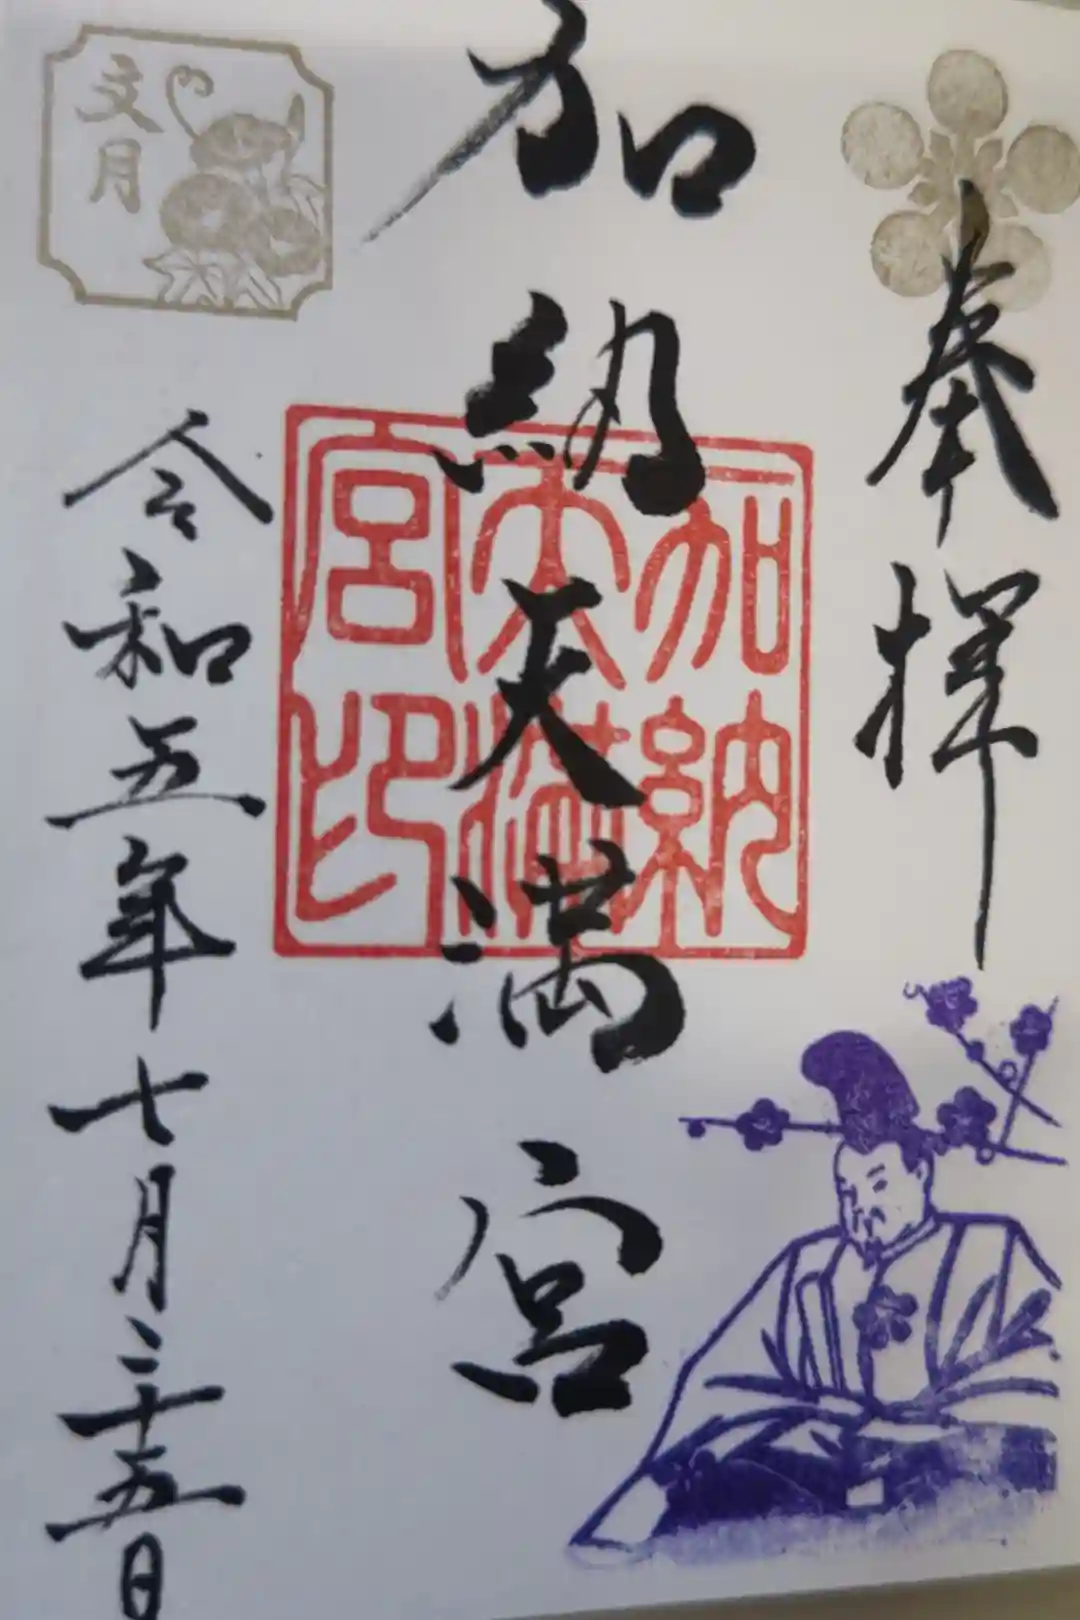 奉拝
加納天満宮
加納
天満
宮印
文月
令和五年七月二十五日